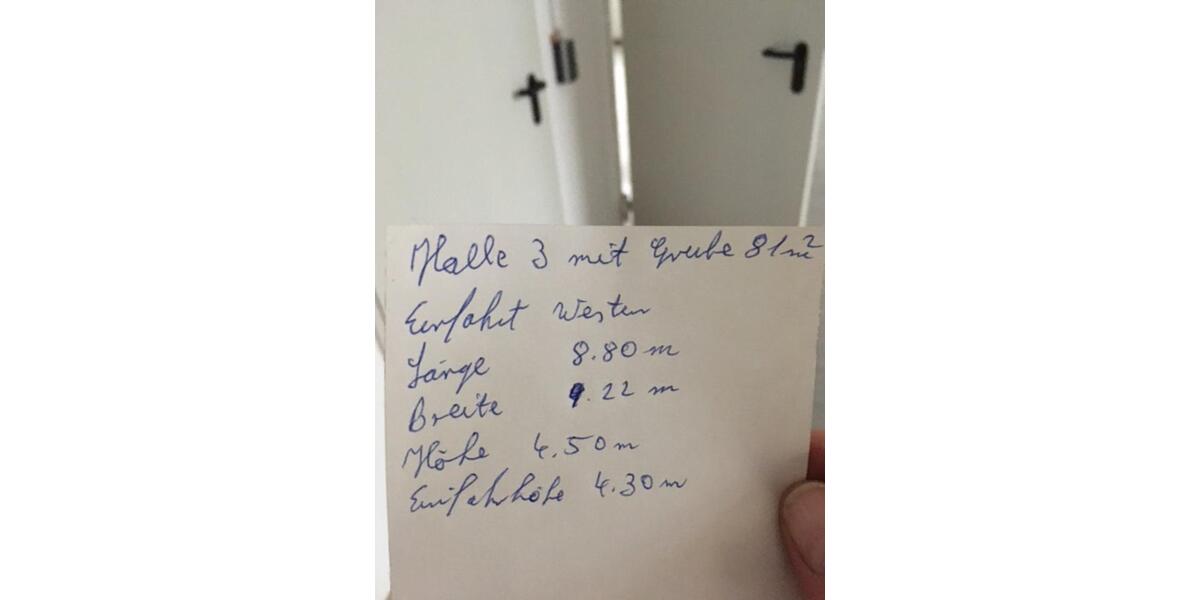 Halle 3 mit Grube 81m²
Einfahrt Westen
Länge 8.80 m
Breite 9.22 m
Höhe 4.50 m
Einfahrhöhe 4.30 m